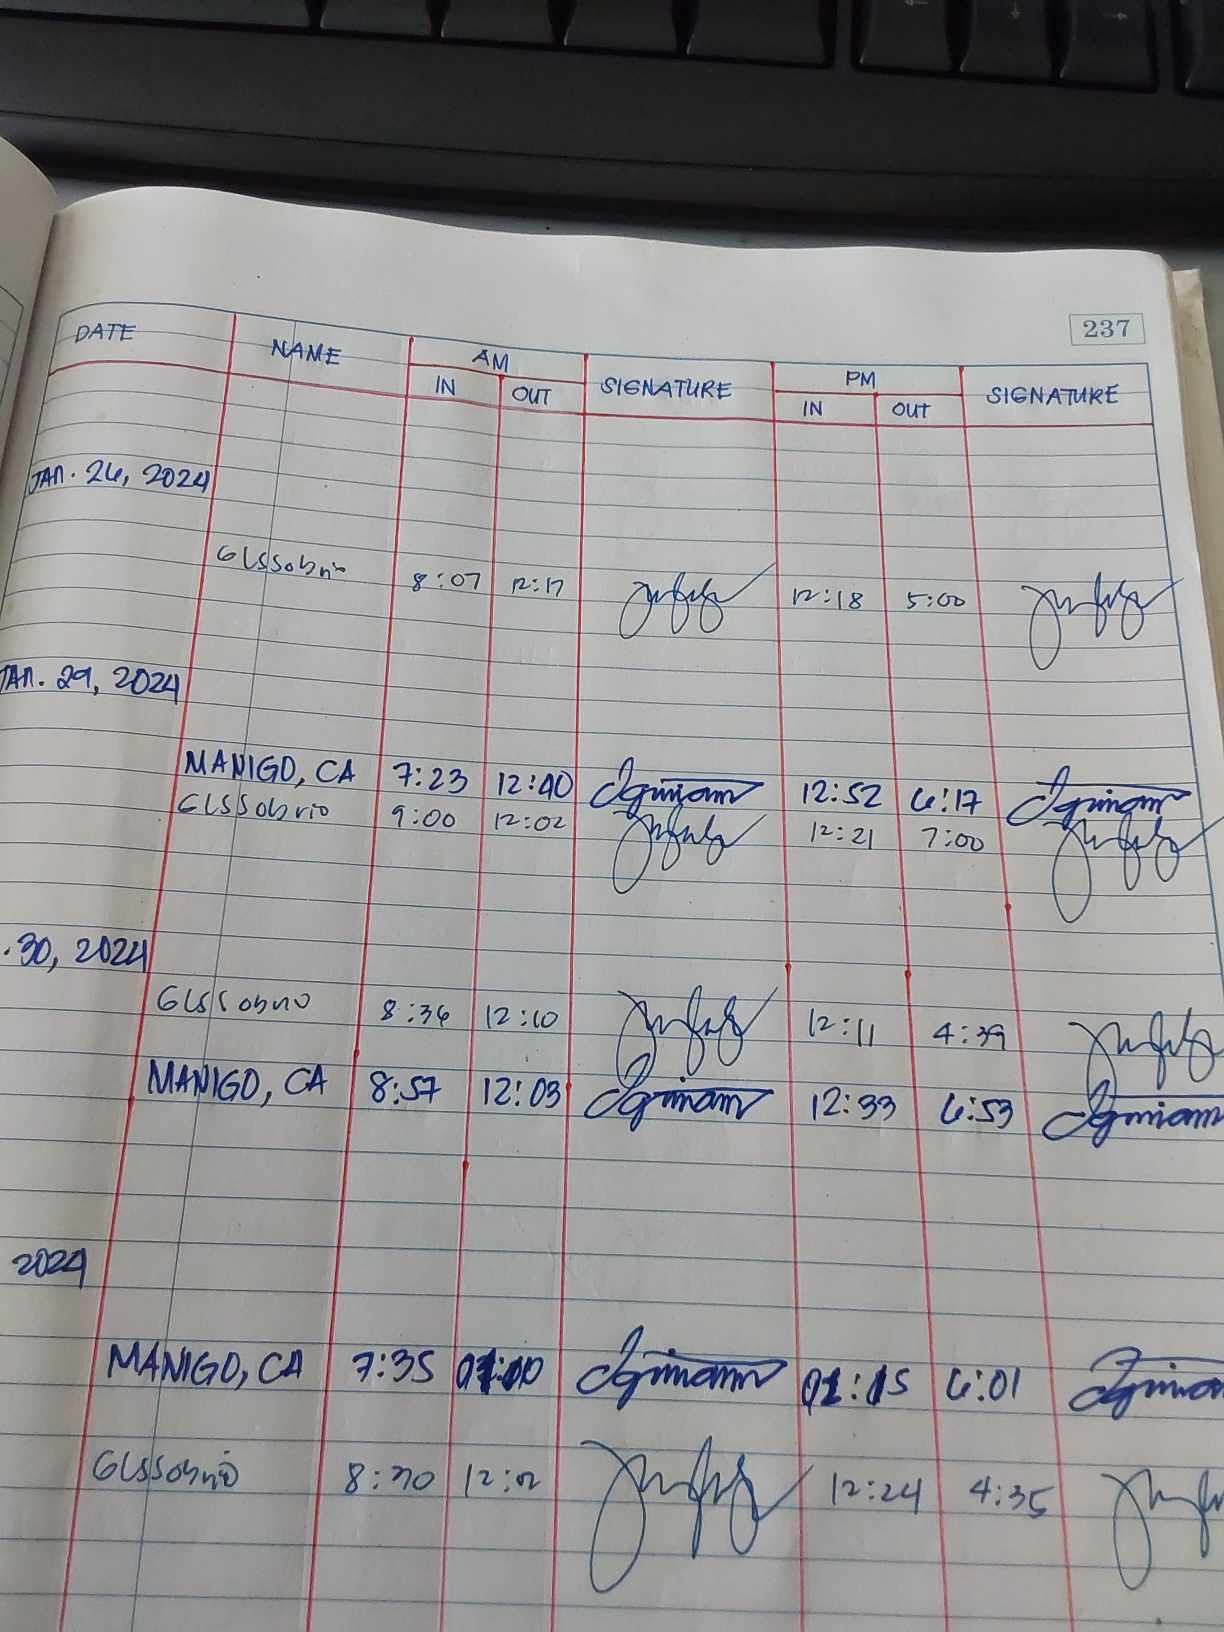 237
DATE NAME AM SIGNATURE PM SIGNATURE
IN OUT IN OUT
JAN. 26, 2024
GLSSobrio 8:07 12:17 12:18 5:00
JAN. 29, 2024
MANIGO, CA 7:23 12:40 12:52 6:17
GLSSobrio 9:00 12:02 12:21 7:00
. 30, 2024
GLSSobrio 8:36 12:10 12:11 4:39
MANIGO, CA 8:57 12:03 12:33 6:53
2024
MANIGO, CA 7:35 6:01
GLSSobrio 12:24 4:35